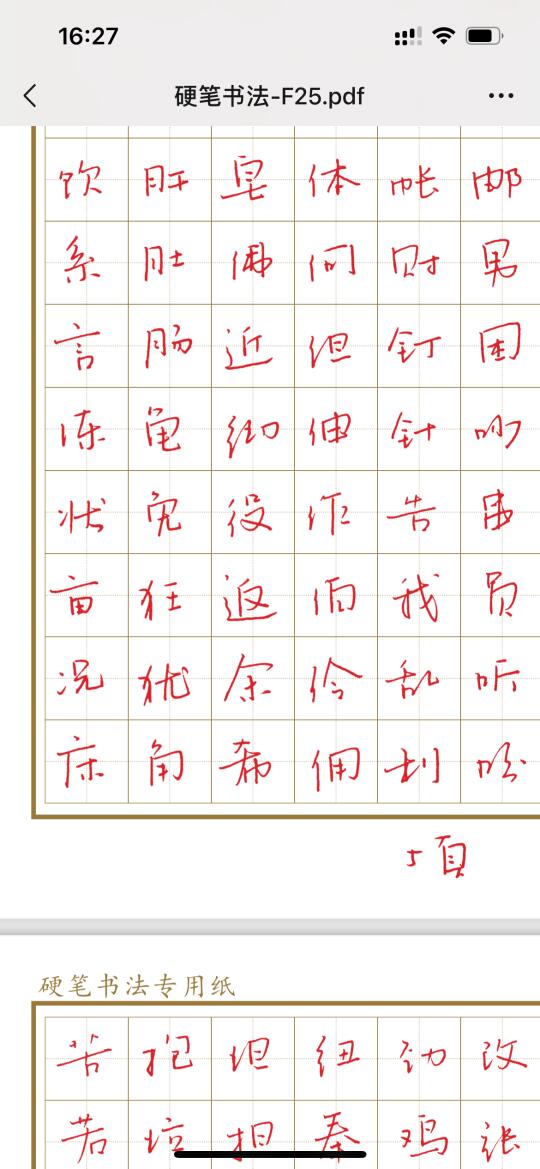 16:27
硬笔书法-F25.pdf
饮 肝 皂 体 帐 邮
系 肚 佛 何 财 男
言 肠 近 但 钉 困
冻 龟 彻 伸 针 吵
状 免 役 作 告 串
亩 狂 返 伯 我 员
况 犹 余 伶 乱 听
床 角 希 佣 利 吩
5頁
硬笔书法专用纸
苦 抱 坦 纽 劲 改
若 垃 担 奉 鸡 张